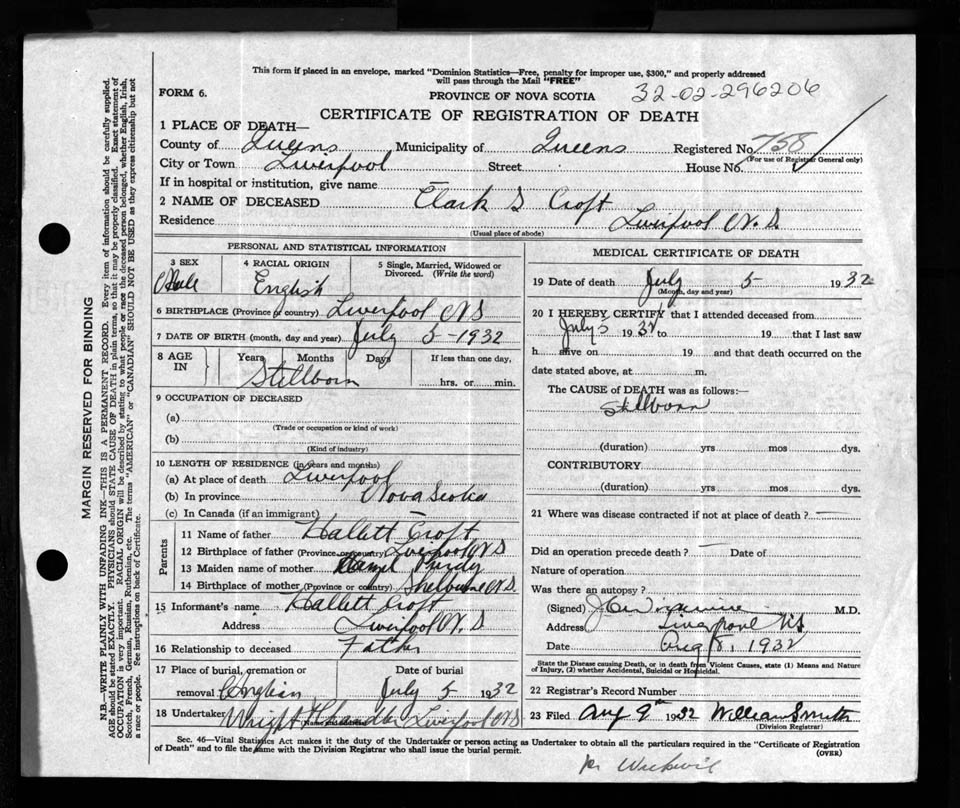 This form if placed in an envelope, marked "Dominion Statistics—Free, penalty for improper use, $300," and properly addressed
will pass through the Mail "FREE"
FORM 6.
PROVINCE OF NOVA SCOTIA 32-02-296206
CERTIFICATE OF REGISTRATION OF DEATH
1 PLACE OF DEATH—
County of Queens Municipality of Queens Registered No. 758
(For use of Registrar General only)
City or Town Liverpool Street House No.
If in hospital or institution, give name
2 NAME OF DECEASED Clark S Croft
Residence Liverpool N.S.
(Usual place of abode)
PERSONAL AND STATISTICAL INFORMATION
3 SEX 4 RACIAL ORIGIN 5 Single, Married, Widowed or
Divorced. (Write the word)
Male English
6 BIRTHPLACE (Province or country) Liverpool N S
7 DATE OF BIRTH (month, day and year) July 5-1932
8 AGE IN Years Months Days If less than one day,
Stillborn hrs. or min.
9 OCCUPATION OF DECEASED
(a)
(Trade or occupation or kind of work)
(b)
(Kind of industry)
10 LENGTH OF RESIDENCE (in years and months)
(a) At place of death Liverpool
(b) In province Nova Scotia
(c) In Canada (if an immigrant)
Parents
11 Name of father Hallett Croft
12 Birthplace of father (Province or country) Liverpool N S
13 Maiden name of mother Purdy
14 Birthplace of mother (Province or country) Shelburne N.S.
15 Informant's name Hallett Croft
Address Liverpool N. S
16 Relationship to deceased Father
17 Place of burial, cremation or Date of burial
removal July 5 1932
18 Undertaker Wright Liverpool N S
MEDICAL CERTIFICATE OF DEATH
19 Date of death July 5 1932
(Month, day and year)
20 I HEREBY CERTIFY that I attended deceased from
July 5 1932 to 19 that I last saw
h alive on 19 and that death occurred on the
date stated above, at m.
The CAUSE of DEATH was as follows:—
Stillborn
(duration) yrs mos dys.
CONTRIBUTORY
(duration) yrs mos dys.
21 Where was disease contracted if not at place of death? —
Did an operation precede death? — Date of
Nature of operation
Was there an autopsy?
(Signed) M.D.
Address Liverpool NS
Date Aug 8, 1932
State the Disease causing Death, or in death from Violent Causes, state (1) Means and Nature
of Injury, (2) whether Accidental, Suicidal or Homicidal.
22 Registrar's Record Number
23 Filed Aug 9th 1932 William Smith
(Division Registrar)
Sec. 46—Vital Statistics Act makes it the duty of the Undertaker or person acting as Undertaker to obtain all the particulars required in the "Certificate of Registration
of Death" and to file the same with the Division Registrar who shall issue the burial permit.
(OVER)
MARGIN RESERVED FOR BINDING
N.B.—WRITE PLAINLY WITH UNFADING INK—THIS IS A PERMANENT RECORD. Every item of information should be carefully supplied.
AGE should be stated EXACTLY. PHYSICIANS should STATE CAUSE OF DEATH in plain terms, so that it may be properly classified. Exact statement of
OCCUPATION is very important. RACIAL ORIGIN will be described by stating to what people or race the deceased person belonged, whether English, Irish,
Scotch, French, German, Russian, Ruthenian, etc. The terms "AMERICAN" or "CANADIAN" SHOULD NOT BE USED as they express citizenship but not
a race or people. See instructions on back of Certificate.